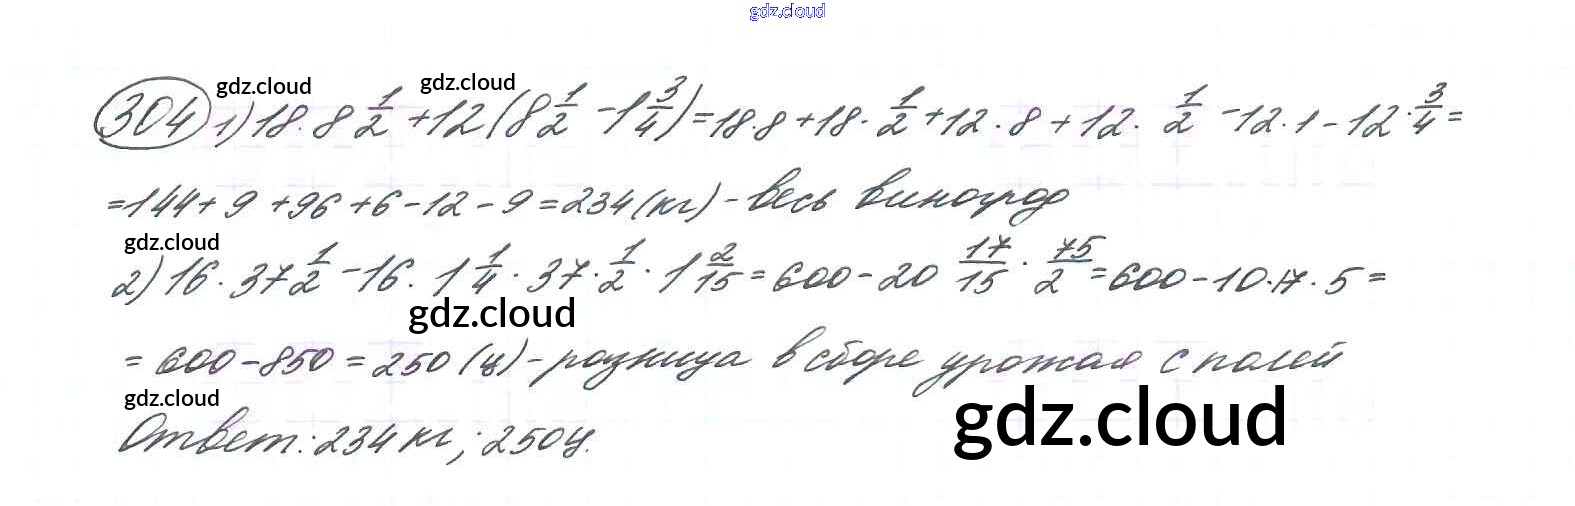 gdz.cloud
gdz.cloud gdz.cloud
304 1) 18·8 1/2 + 12 (8 1/2 - 1 3/4) = 18·8 + 18· 1/2 + 12·8 + 12· 1/2 - 12·1 - 12· 3/4 =
= 144 + 9 + 96 + 6 - 12 - 9 = 234 (кг) - весь виноград
gdz.cloud
2) 16·37 1/2 - 16· 1 1/4 · 37· 1/2 · 1 2/15 = 600 - 20 17/15 · 75/2 = 600 - 10·17·5 =
gdz.cloud
= 600 - 850 = 250 (ц) - разница в сборе урожая с полей
gdz.cloud
gdz.cloud
Ответ: 234 кг; 250 ц.